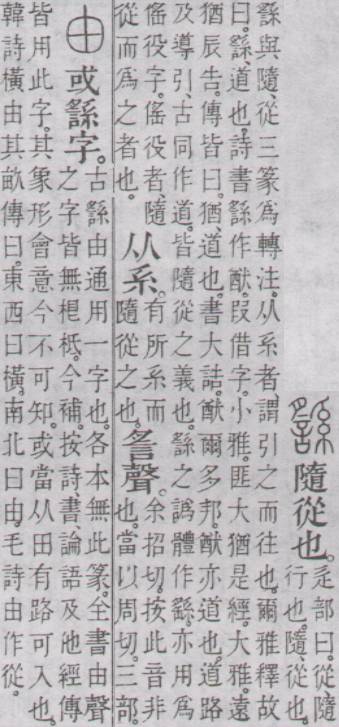 隨從也。
辵部曰。從、隨
行也。隨、從也。
䌛與隨、從三篆爲轉注。从系者謂引之而往也。爾雅釋故
曰。䌛、道也。詩書䌛作猷。叚借字。小雅。匪大猶是經。大雅。遠
猶辰告。傳皆曰。猶、道也。書大誥。猷爾多邦。猷亦道也。道路
及導引、古同作道。皆隨從之義也。䌛之譌體作繇。亦用爲
傜役字。傜役者、隨
從而爲之者也。
从系。
有所系而
隨從之也。
䚻聲。
余招切。按此音非
也。當以周切。三部。
或䌛字。
古䌛由通用一字也。各本無此篆。全書由聲
之字皆無柢柢。今補。按詩、書、論語及他經傳
皆用此字。其象形會意今不可知。或當从田有路可入也。
韓詩橫由其畝傳曰。東西曰橫。南北曰由。毛詩由作從。